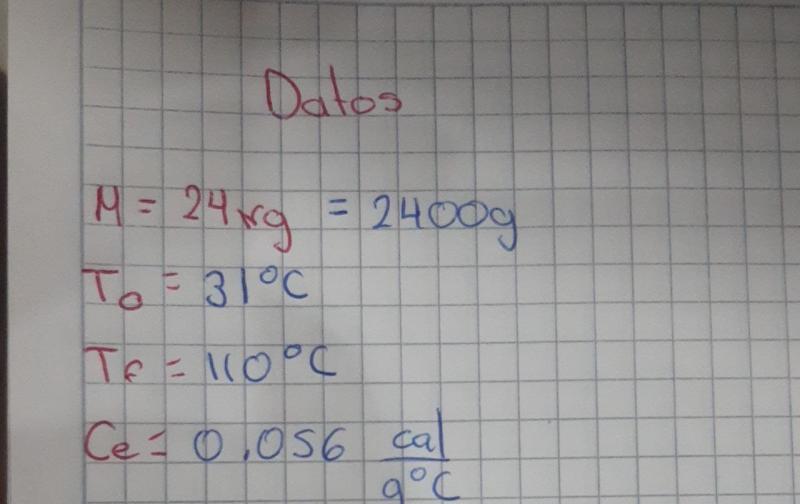 Datos
M = 24kg = 2400g
To = 31°C
Tf = 110°C
Ce = 0.056 cal
g°C